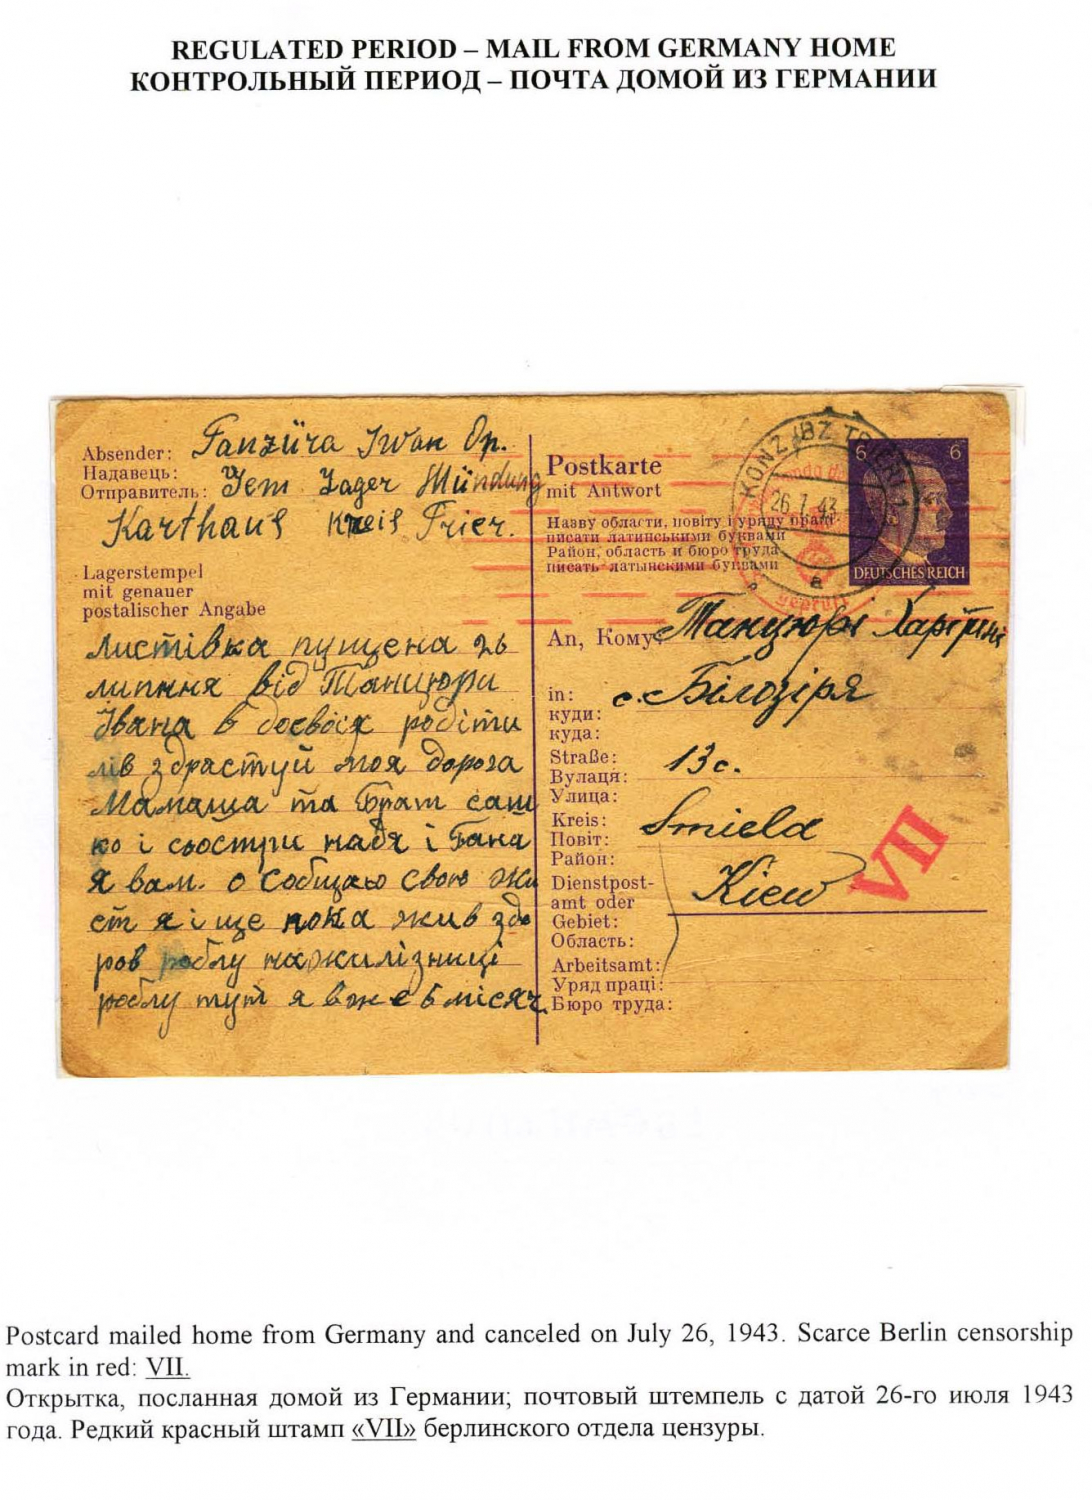 REGULATED PERIOD – MAIL FROM GERMANY HOME
КОНТРОЛЬНЫЙ ПЕРИОД – ПОЧТА ДОМОЙ ИЗ ГЕРМАНИИ
Absender: Tanzüra Iwan Op.
Надавець:
Отправитель: Gem Lager Mündung
Karthaus Kreis Trier.
Lagerstempel
mit genauer
postalischer Angabe
Листівка пущена 26
липння від Танцюри
Івана в боєвоіх робіти
лів здрастуй моя дорога
Мамаша та Брат саш
ко і сьостри надя і Гана
я вам. о собщаю свою жи
ст я і ще пока жив здо
ров роблу нажилізниці
роблу тут я вже 6 місяч.
Postkarte
mit Antwort
Назву области, повіту і уряду праці
писати латинськими буквами
Район, область и бюро труда
писать латынскими буквами
KONZ (BZ TRIER) 1
26.7.43
a
geprüft
6 6
DEUTSCHES REICH
An, Кому: Танцюрі Харітіні
in: с. Білозіря
куди:
куда:
Straße: 13 с.
Вулаця:
Улица:
Kreis: Smield
Повіт:
Район:
Dienstpost-
amt oder Kiew
Gebiet:
Область:
VII
Arbeitsamt:
Уряд праці:
Бюро труда:
Postcard mailed home from Germany and canceled on July 26, 1943. Scarce Berlin censorship
mark in red: VII.
Открытка, посланная домой из Германии; почтовый штемпель с датой 26-го июля 1943
года. Редкий красный штамп «VII» берлинского отдела цензуры.